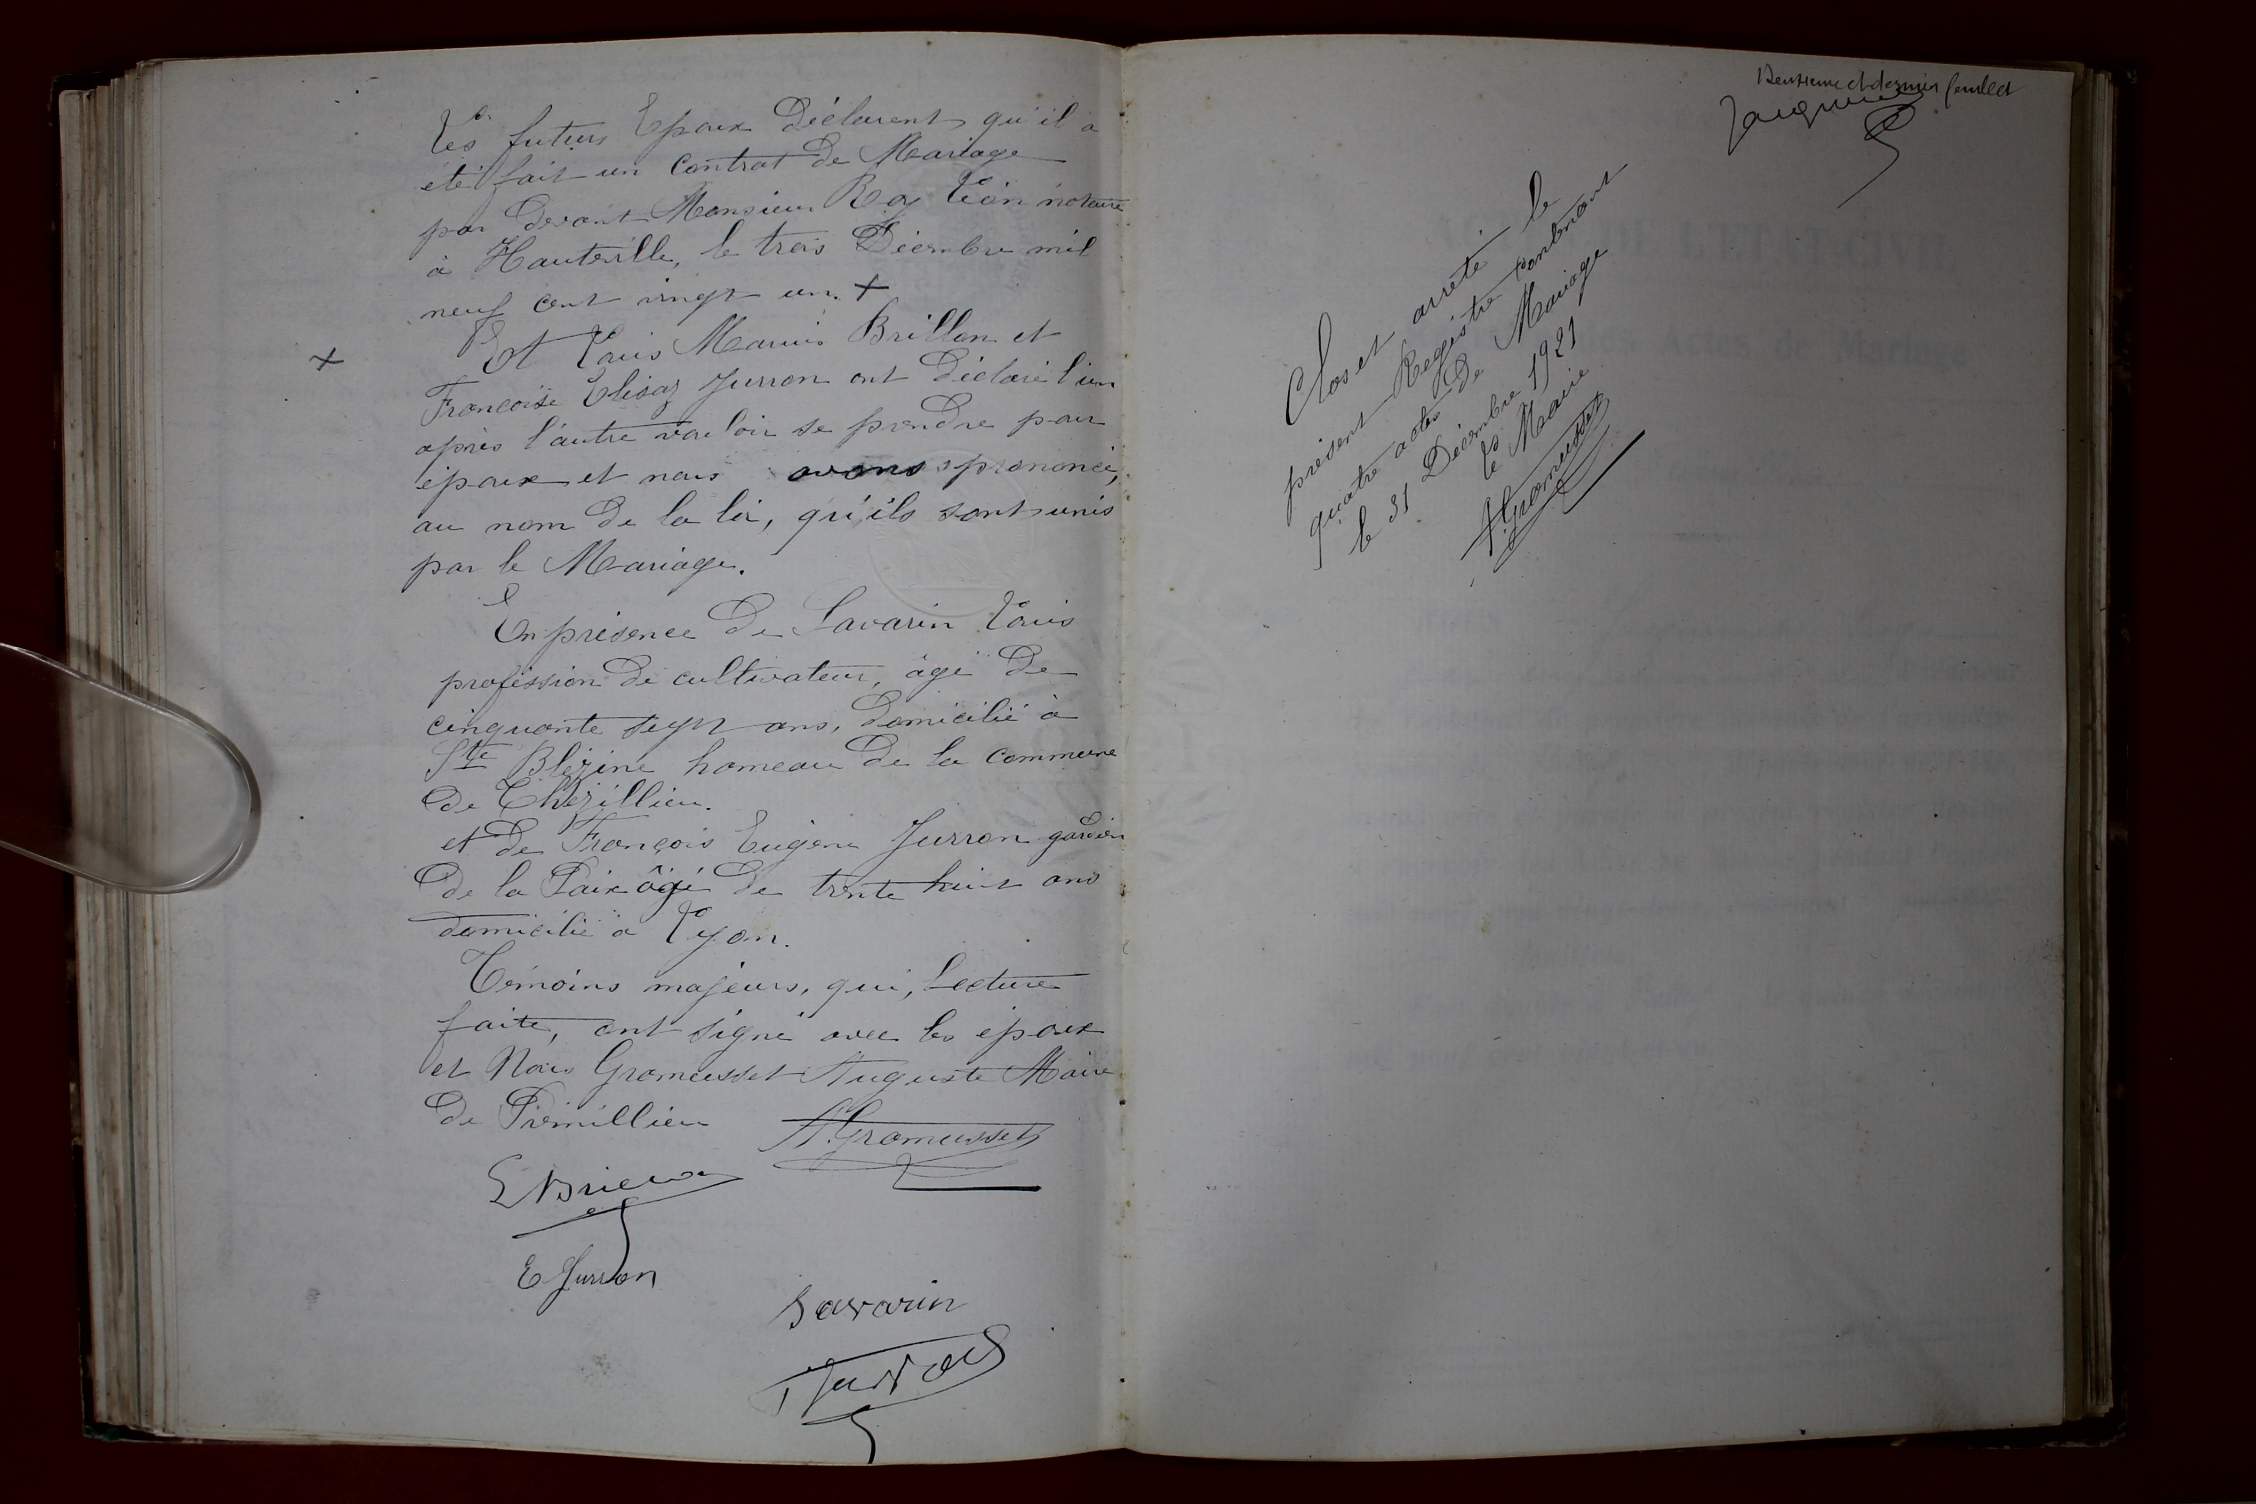 Les futurs Epoux Déclarent qu'il a
été fait un contrat de Mariage
par devant Monsieur Roy Léon notaire
à Hauteville, le trois Décembre mil
neuf cent vingt un. +
+
Et Louis Marius Brillon et
Françoise Elisa Jurron ont Déclaré l'un
après l'autre vouloir se prendre pour
époux et nous avons prononcé,
au nom de la loi, qu'ils sont unis
par le Mariage.
En présence de Savarin Louis
profession de cultivateur, âgé de
cinquante sept ans, domicilié à
Ste Blézine hameau de la commune
de Thézillieu.
et de François Eugène Jurron gardien
de la Paix âgé de trente huit ans
domicilié à Lyon.
Témoins majeurs, qui, Lecture
faite, ont signé avec les époux
et Nous Gromusset Auguste Maire
de Prémillieu
A. Gromusset
E Jurron
Savarin
Deuxième et dernier feuillet
Clos et arrêté le
présent Registre contenant
quatre actes de Mariage
le 31 Décembre 1921
le Maire
A. Gromusset